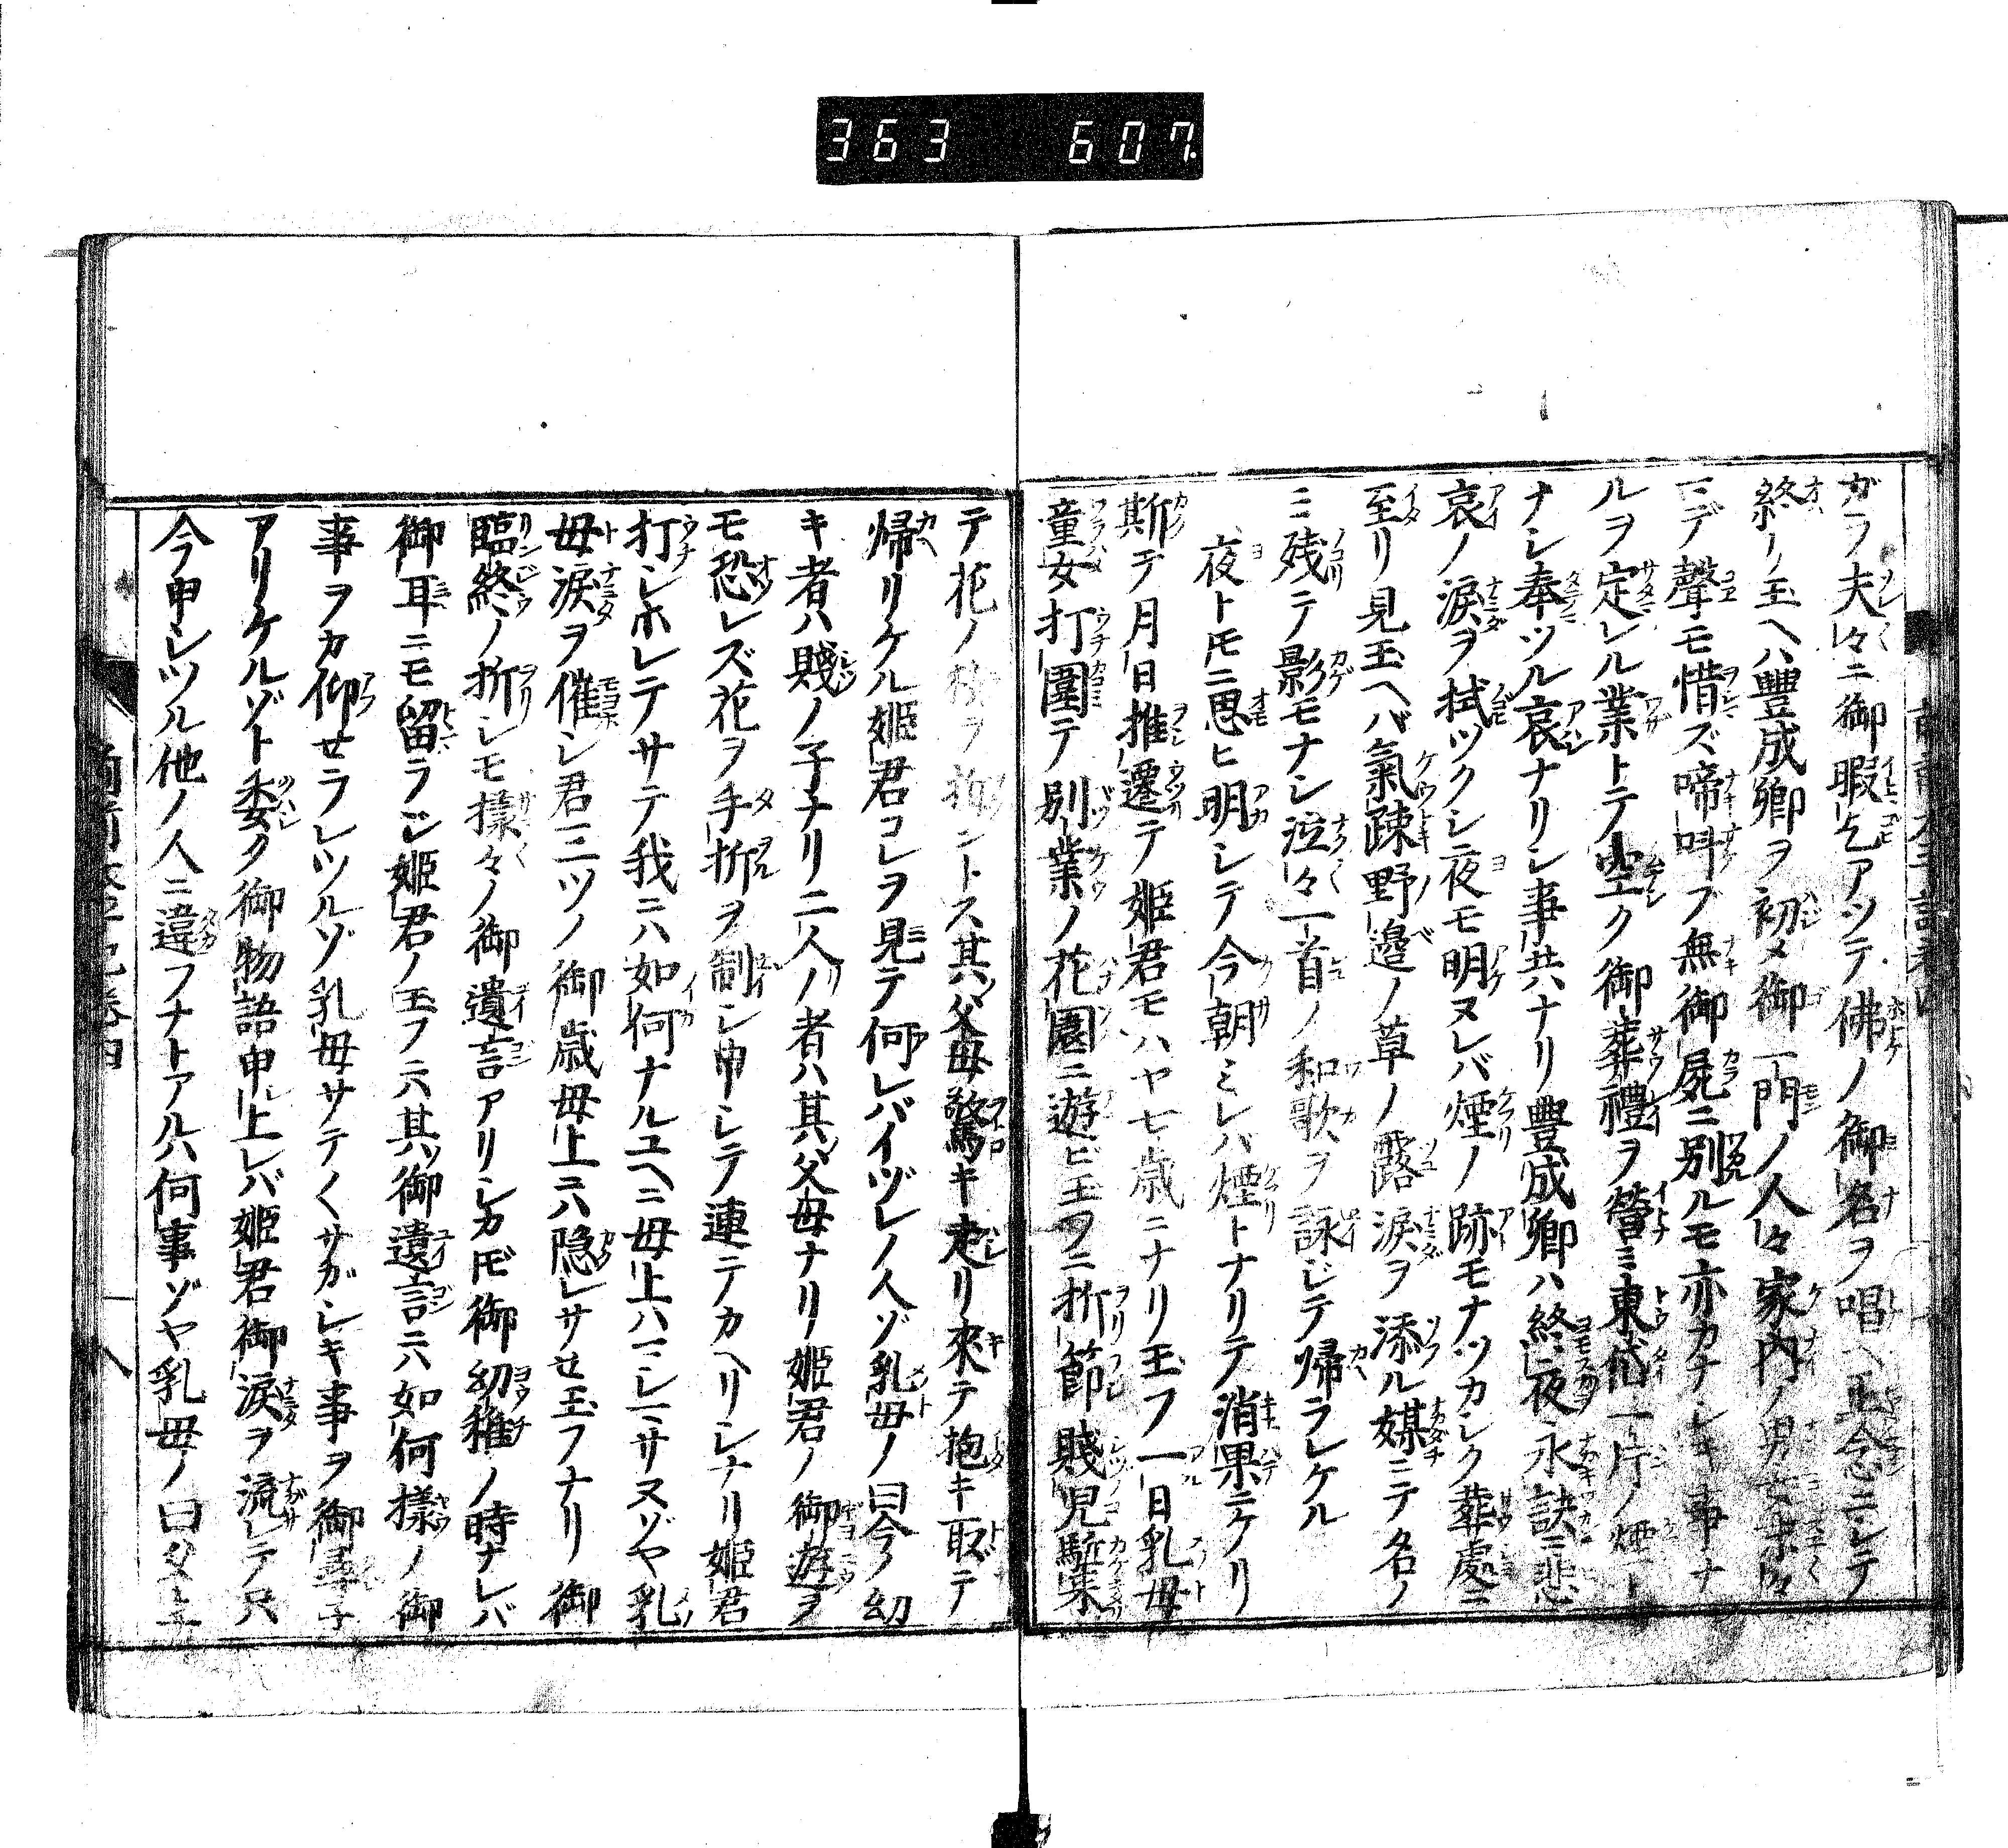 363 607
ガラ夫々ニ御暇乞アツテ佛ノ御名ヲ唱ヘ正念ニシテ
終リ玉ヘハ豊成卿ヲ初メ御一門ノ人々家内ノ男女末々
ニデ聲モ惜ズ啼呌ブ無御屍ニ別ルモ亦カナシキ事ナ
ルヲ定レル業トテ空ク御葬禮ヲ營ミ東岱一片ノ煙ト
ナシ奉ツル哀ナリシ事共ナリ豊成卿ハ終夜永訣ニ悲
哀ノ淚ヲ拭ツクシ夜モ明ヌレバ煙ノ跡モナツカシク葬處ニ
至リ見玉ヘバ氣疎野邉ノ草ノ露淚ヲ添ル媒ニテ名ノ
ミ残テ影モナシ泣々一首ノ和歌ヲ詠ジテ帰ラレケル
夜トモニ思ヒ明シテ今朝ミレバ煙トナリテ消果ニケリ
斯テ月日推遷テ姫君モハヤ七歳ニナリ玉フ一日乳母
童女打圍テ別業ノ花園ニ遊ビ玉フニ折節賤児駈来
テ花ノ枝ヲ折ントス其父母驚キ走リ來テ抱キ取デ
帰リケル姫君コレヲ見テ何レバイヅレノ人ゾ乳母ノ曰今ノ幼
キ者ハ賤ノ子ナリ二人ノ者ハ其父母ナリ姫君ノ御遊ヲ
モ恐レズ花ヲ手折ヲ制シ申シテ連テカヘリシナリ姫君
打シホレテサテ我ニハ如何ナルユヘニ母上ハマシマサヌゾヤ乳
母淚ヲ催シ君三ツノ御歳母上ニハ隠レサセ玉フナリ御
臨終ノ折シモ様々ノ御遺言アリシカドモ御幼稚ノ時ナレバ
御耳ニモ留ラシ姫君ノ玉フニハ其御遺言ニハ如何樣ノ御
事ヲカ仰セラレツルゾ乳母サテ〱サガシキ事ヲ御尋子
アリケルゾト委ク御物語申上レバ姫君御淚ヲ流シテ只
今申シツル他ノ人ニ違フナトアルハ何事ゾヤ乳母ノ曰父